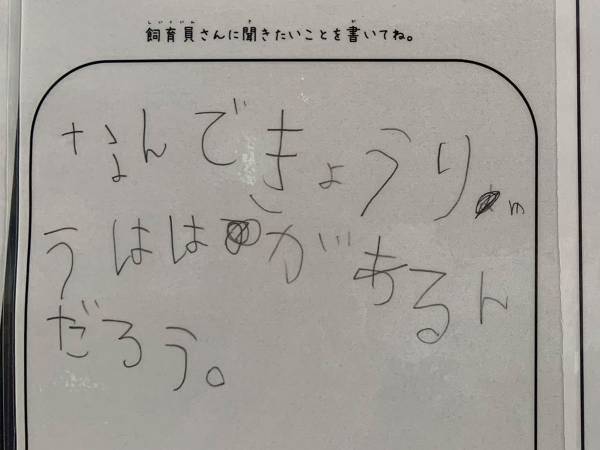 しいくいん き か
飼育員さんに聞きたいことを書いてね。
なんできょうりゅ
うははがあるん
だろう。